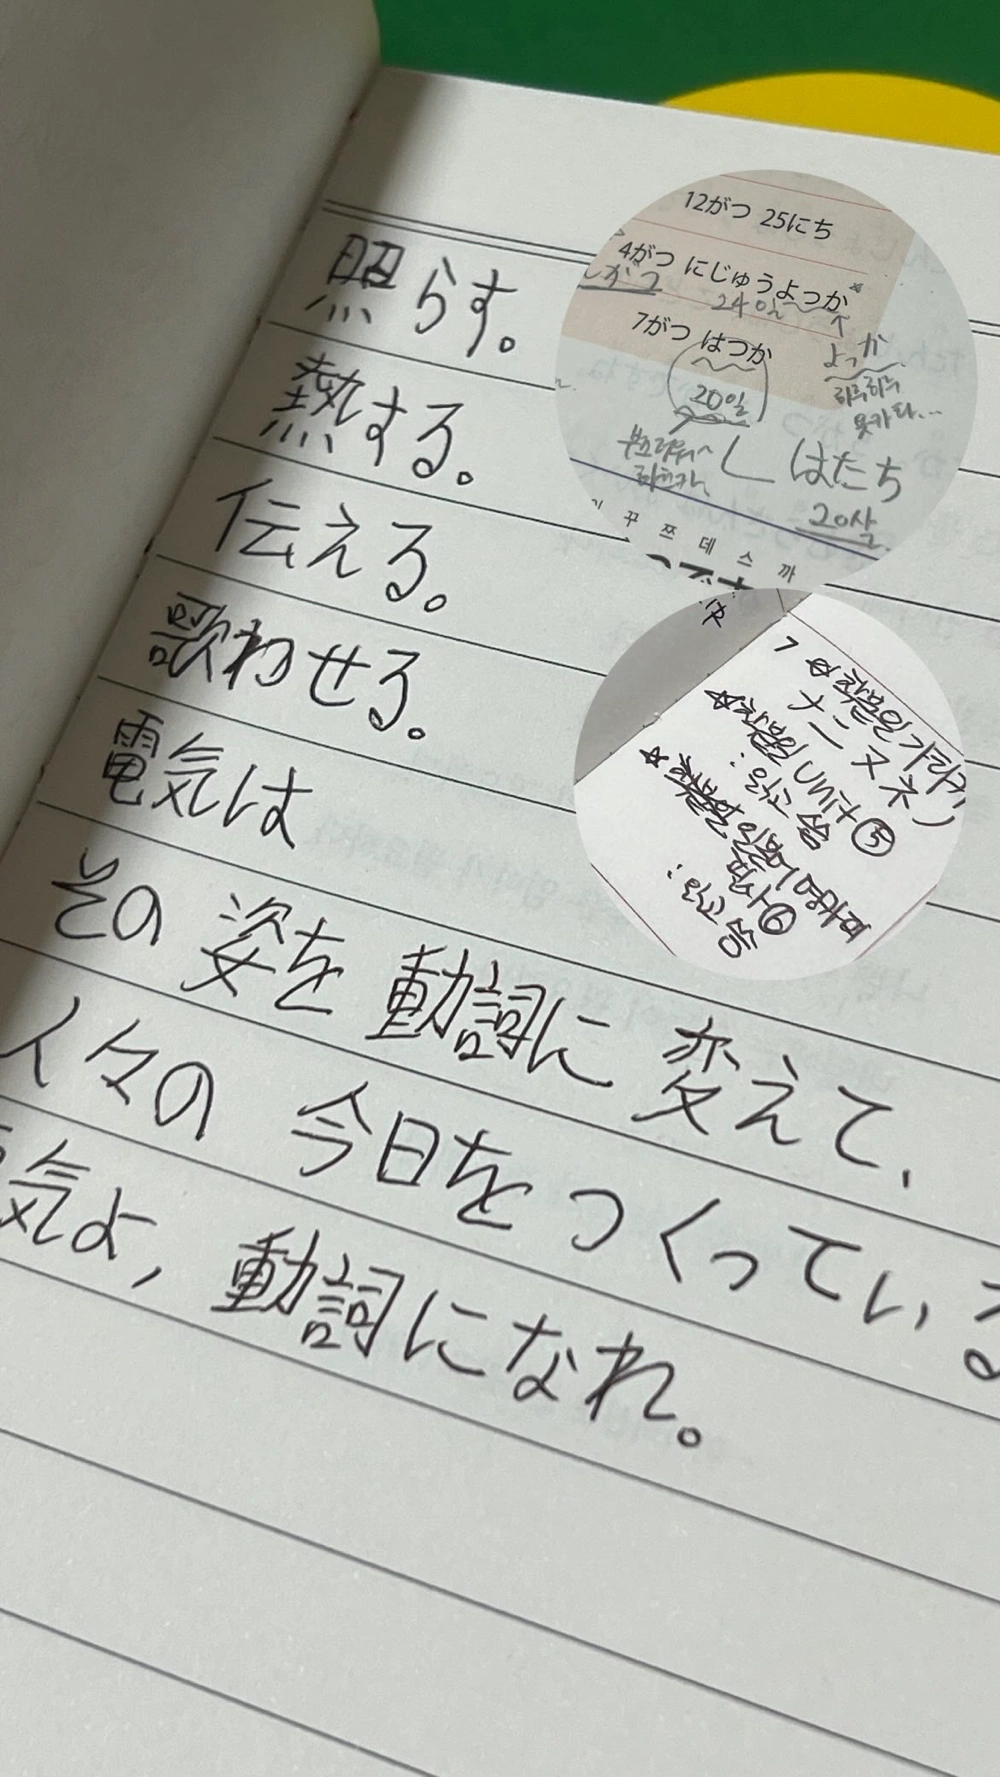 照らす。
熱する。
伝える。
歌わせる。
電気は
その 姿を 動詞に 変えて、
人々の 今日を つくっている
気よ, 動詞になれ。
12がつ 25にち
4がつ にじゅうよっか
しがつ
24일
7がつ はつか
よっか
20일
はたち
20살
꾸 쯔 데 스 까
ナニヌネ